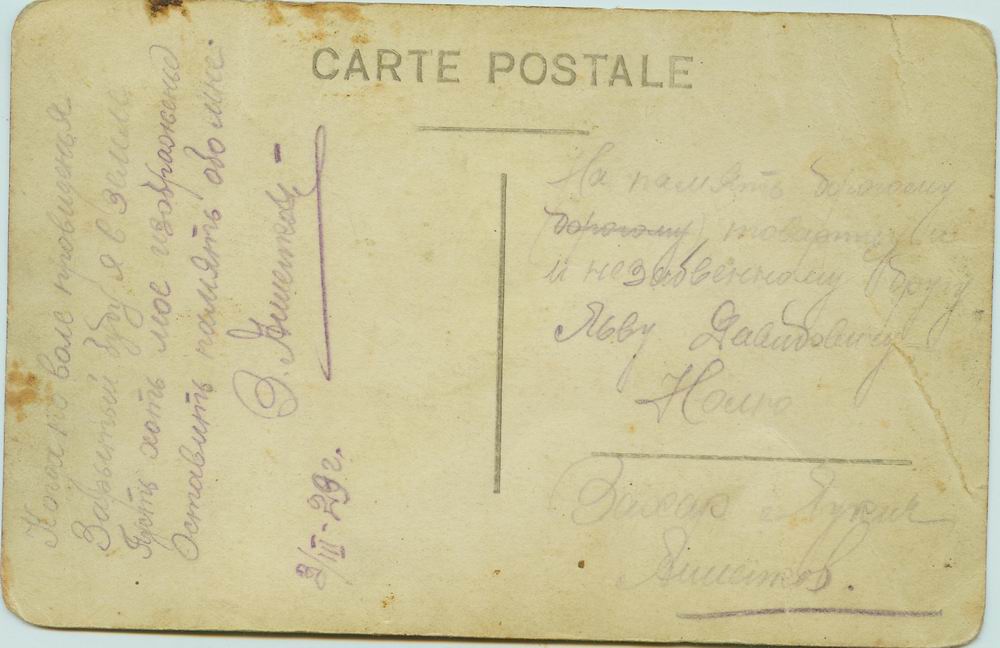 CARTE POSTALE
Когда по воле провиденья
Зарытый буду я в земле
Пусть хоть мое изображенье
Оставить память обо мне.
2/III-29 г.
На память дорогому
(дорогому) товарищу
и незабвенному другу
Льву Давидовичу
Захар